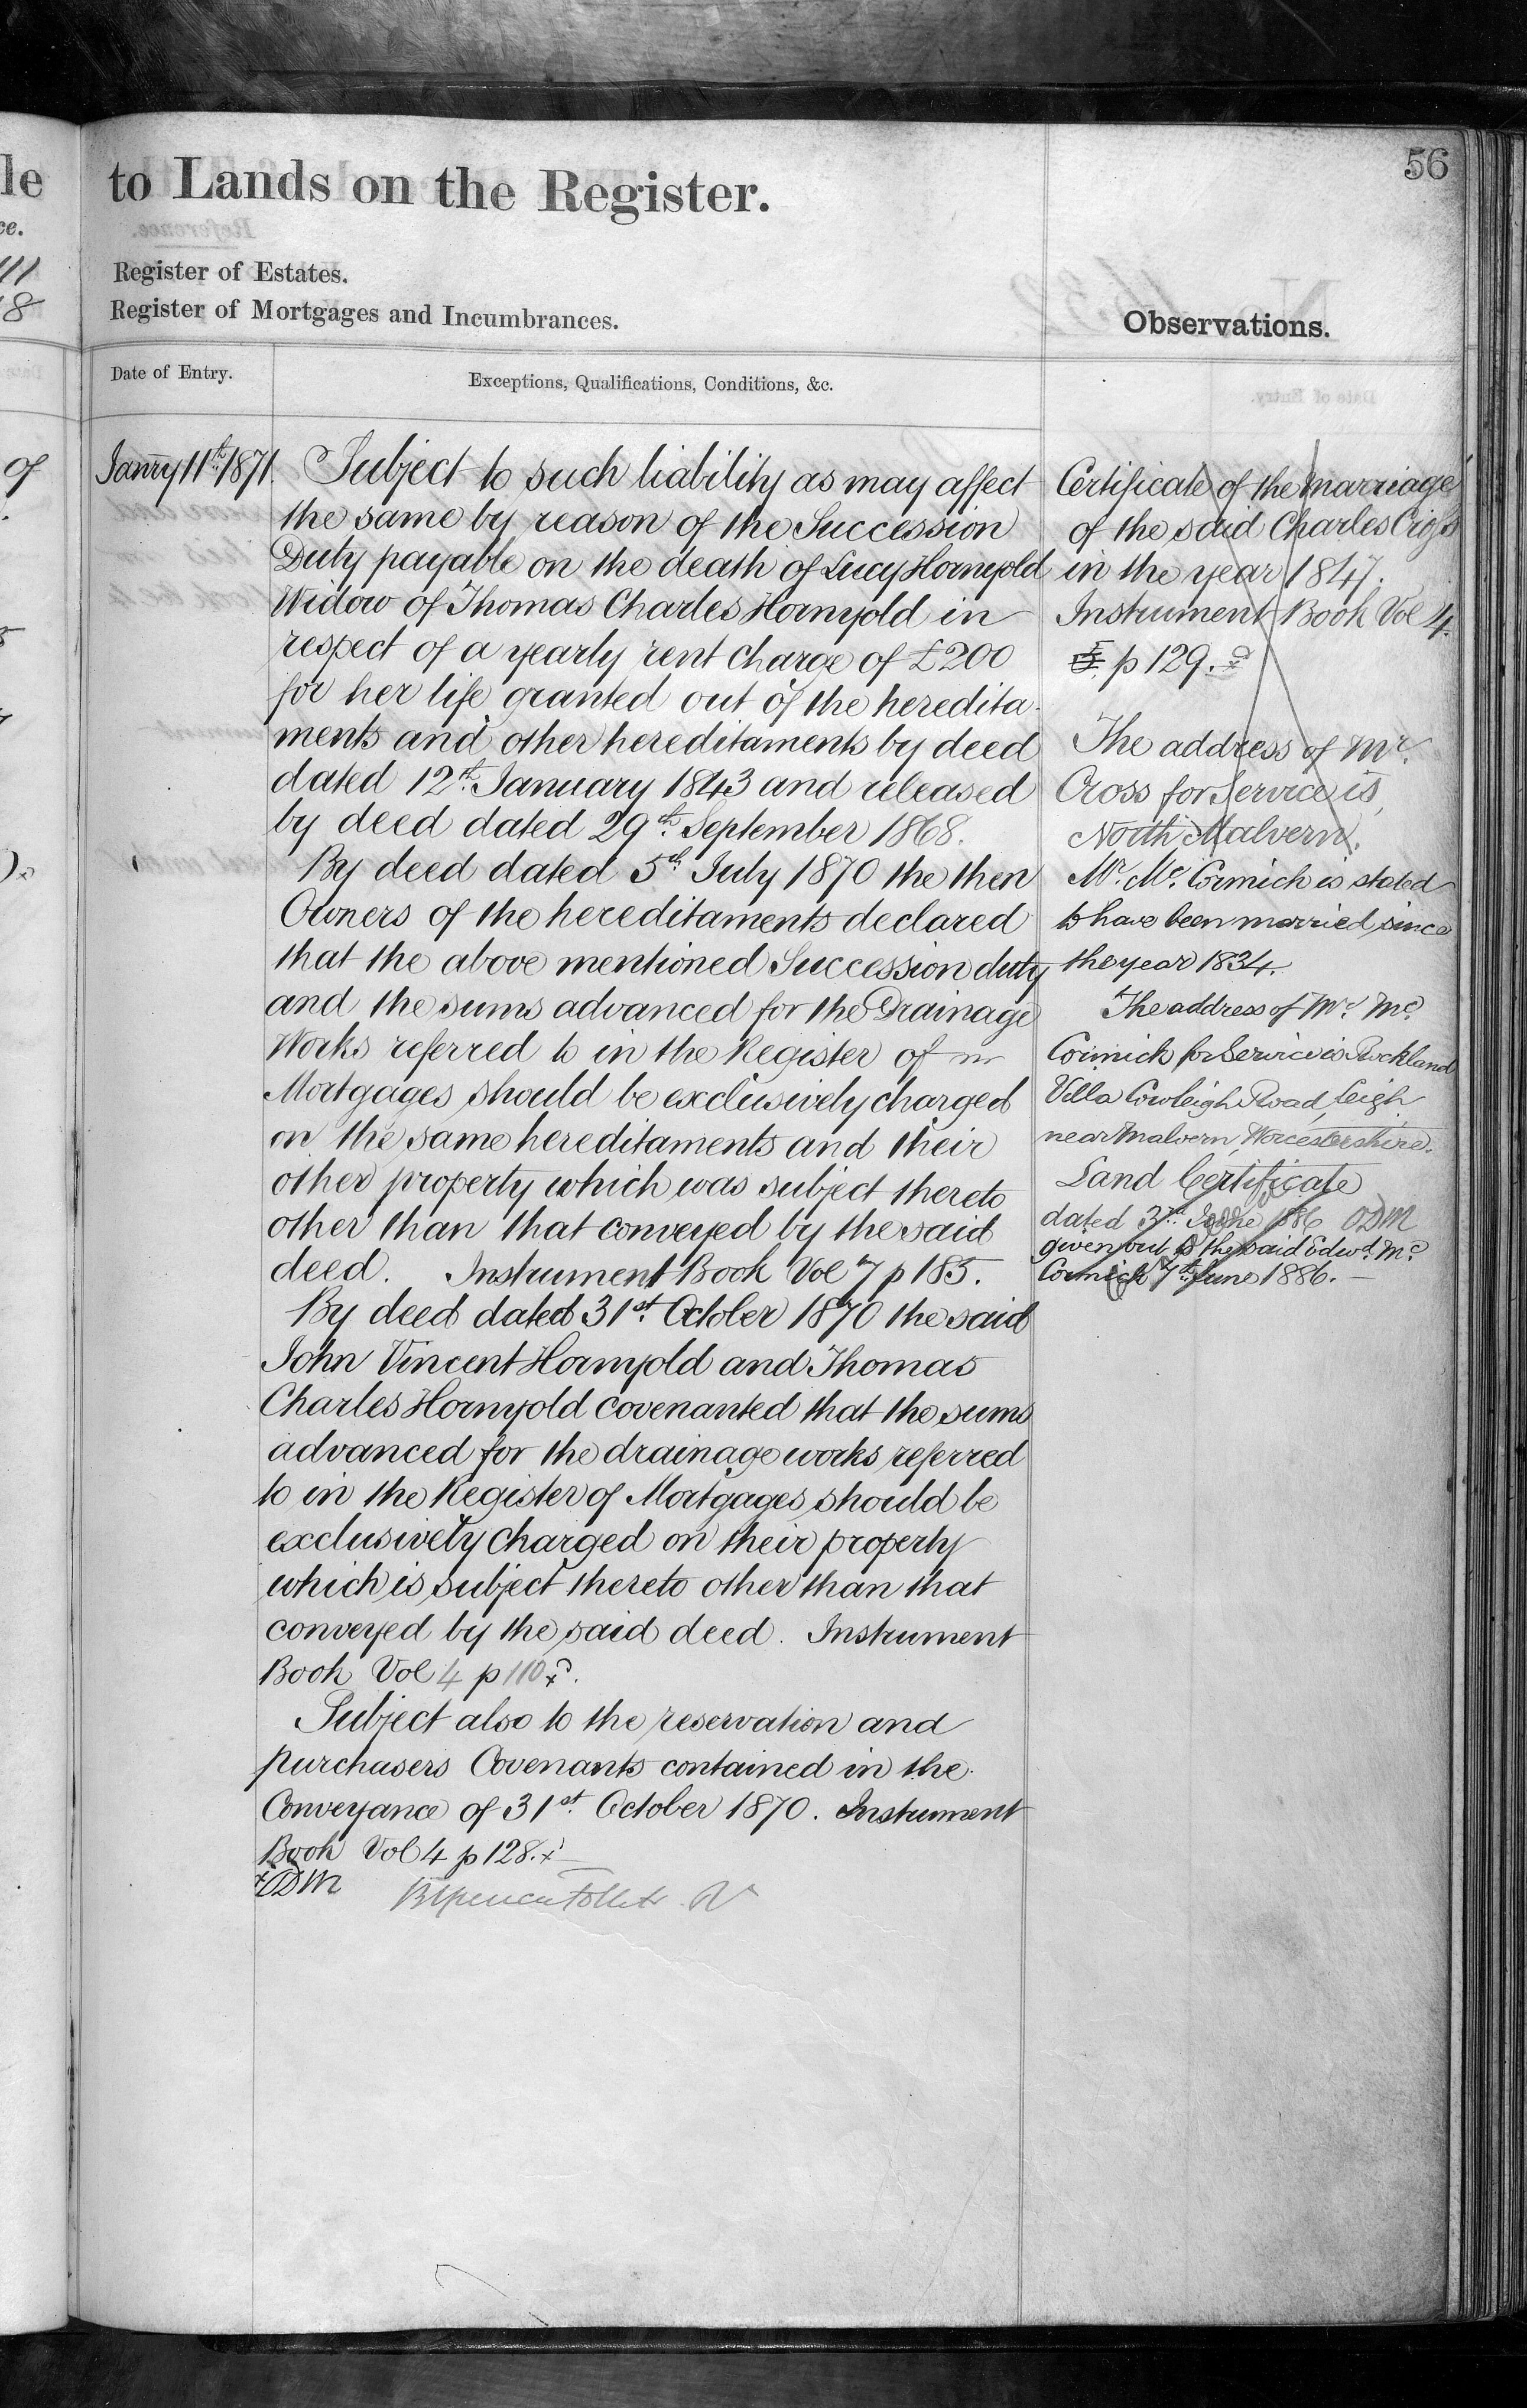 56
le to Lands on the Register.
ce.
111
18
Register of Estates.
Register of Mortgages and Incumbrances.
Observations.
Date of Entry.
Exceptions, Qualifications, Conditions, &c.
of
Janry 11th 1871.
Subject to such liability as may affect
the same by reason of the Succession
Duty payable on the death of Lucy Hornyold
Widow of Thomas Charles Hornyold in
respect of a yearly rent charge of £200
for her life granted out of the heredita-
ments and other hereditaments by deed
dated 12th January 1843 and released
by deed dated 29th September 1868.
By deed dated 5th July 1870 the then
Owners of the hereditaments declared
that the above mentioned Succession duty
and the sums advanced for the Drainage
Works referred to in the Register of
Mortgages should be exclusively charged
on the same hereditaments and their
other property which was subject thereto
other than that conveyed by the said
deed. Instrument Book Vol 7 p 185.
By deed dated 31st October 1870 the said
John Vincent Hornyold and Thomas
Charles Hornyold covenanted that the sums
advanced for the drainage works referred
to in the Register of Mortgages should be
exclusively charged on their property
which is subject thereto other than that
conveyed by the said deed. Instrument
Book Vol 4 p 110 x
Subject also to the reservation and
purchasers Covenants contained in the
Conveyance of 31st October 1870. Instrument
Book Vol 4 p 128. x
x ODM
Certificate of the marriage
of the said Charles Cross
in the year 1847.
Instrument Book Vol 4.
5. p 129. x
The address of Mr.
Cross for Service is
North Malvern.
Mr. Mc.Cormick is stated
to have been married since
the year 1834.
The address of Mr. Mc.
Cormick for Service is Rockland
Villa Cowleigh Road, Leigh
near Malvern, Worcestershire.
Land Certificate
dated 3rd June 1886 ODM
given out to the said Edwd. Mc.
Cormick 7th June 1886.